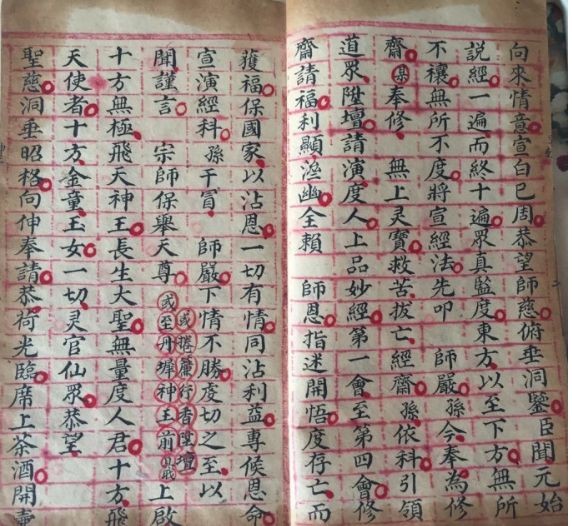 向來情意宣白已周恭望師慈俯垂洞鑒臣聞元始
說經一遍而終十遍眾真監度東方以至下方無所
不禳無所不度將宣經法先叩 師嚴孫今奉為修
齋奉修 無上灵寶救苦拔亡經齋孫依科引領
道眾陞壇請演度人上品妙經第一會至第四會修
齋請福利顯溼幽全賴 師恩指迷開悟度存亡而
獲福保國家以沾恩一切有情同沾利益專候恩命
宣演經科孫干冒 師嚴下情不勝虔切之至以
聞謹言 宗師保舉天尊 或捲簾行香陞壇 或至丹墀神王前 上啟
十方無極飛天神王長生大聖無量度人君十方飛
天使者十方金童玉女一切灵官仙眾恭望
聖慈洞垂昭格向伸奉請恭荷光臨席上茶酒開壺